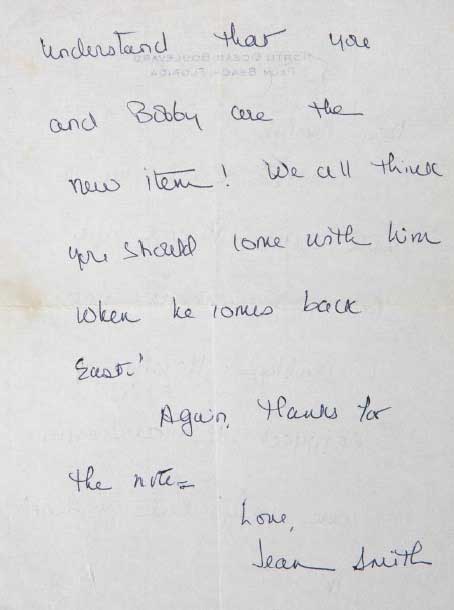 understand that you
and Bobby are the
new item! We all think
you should come with him
when he comes back
East!
Again, thanks for
the note =
Love,
Jean Smith